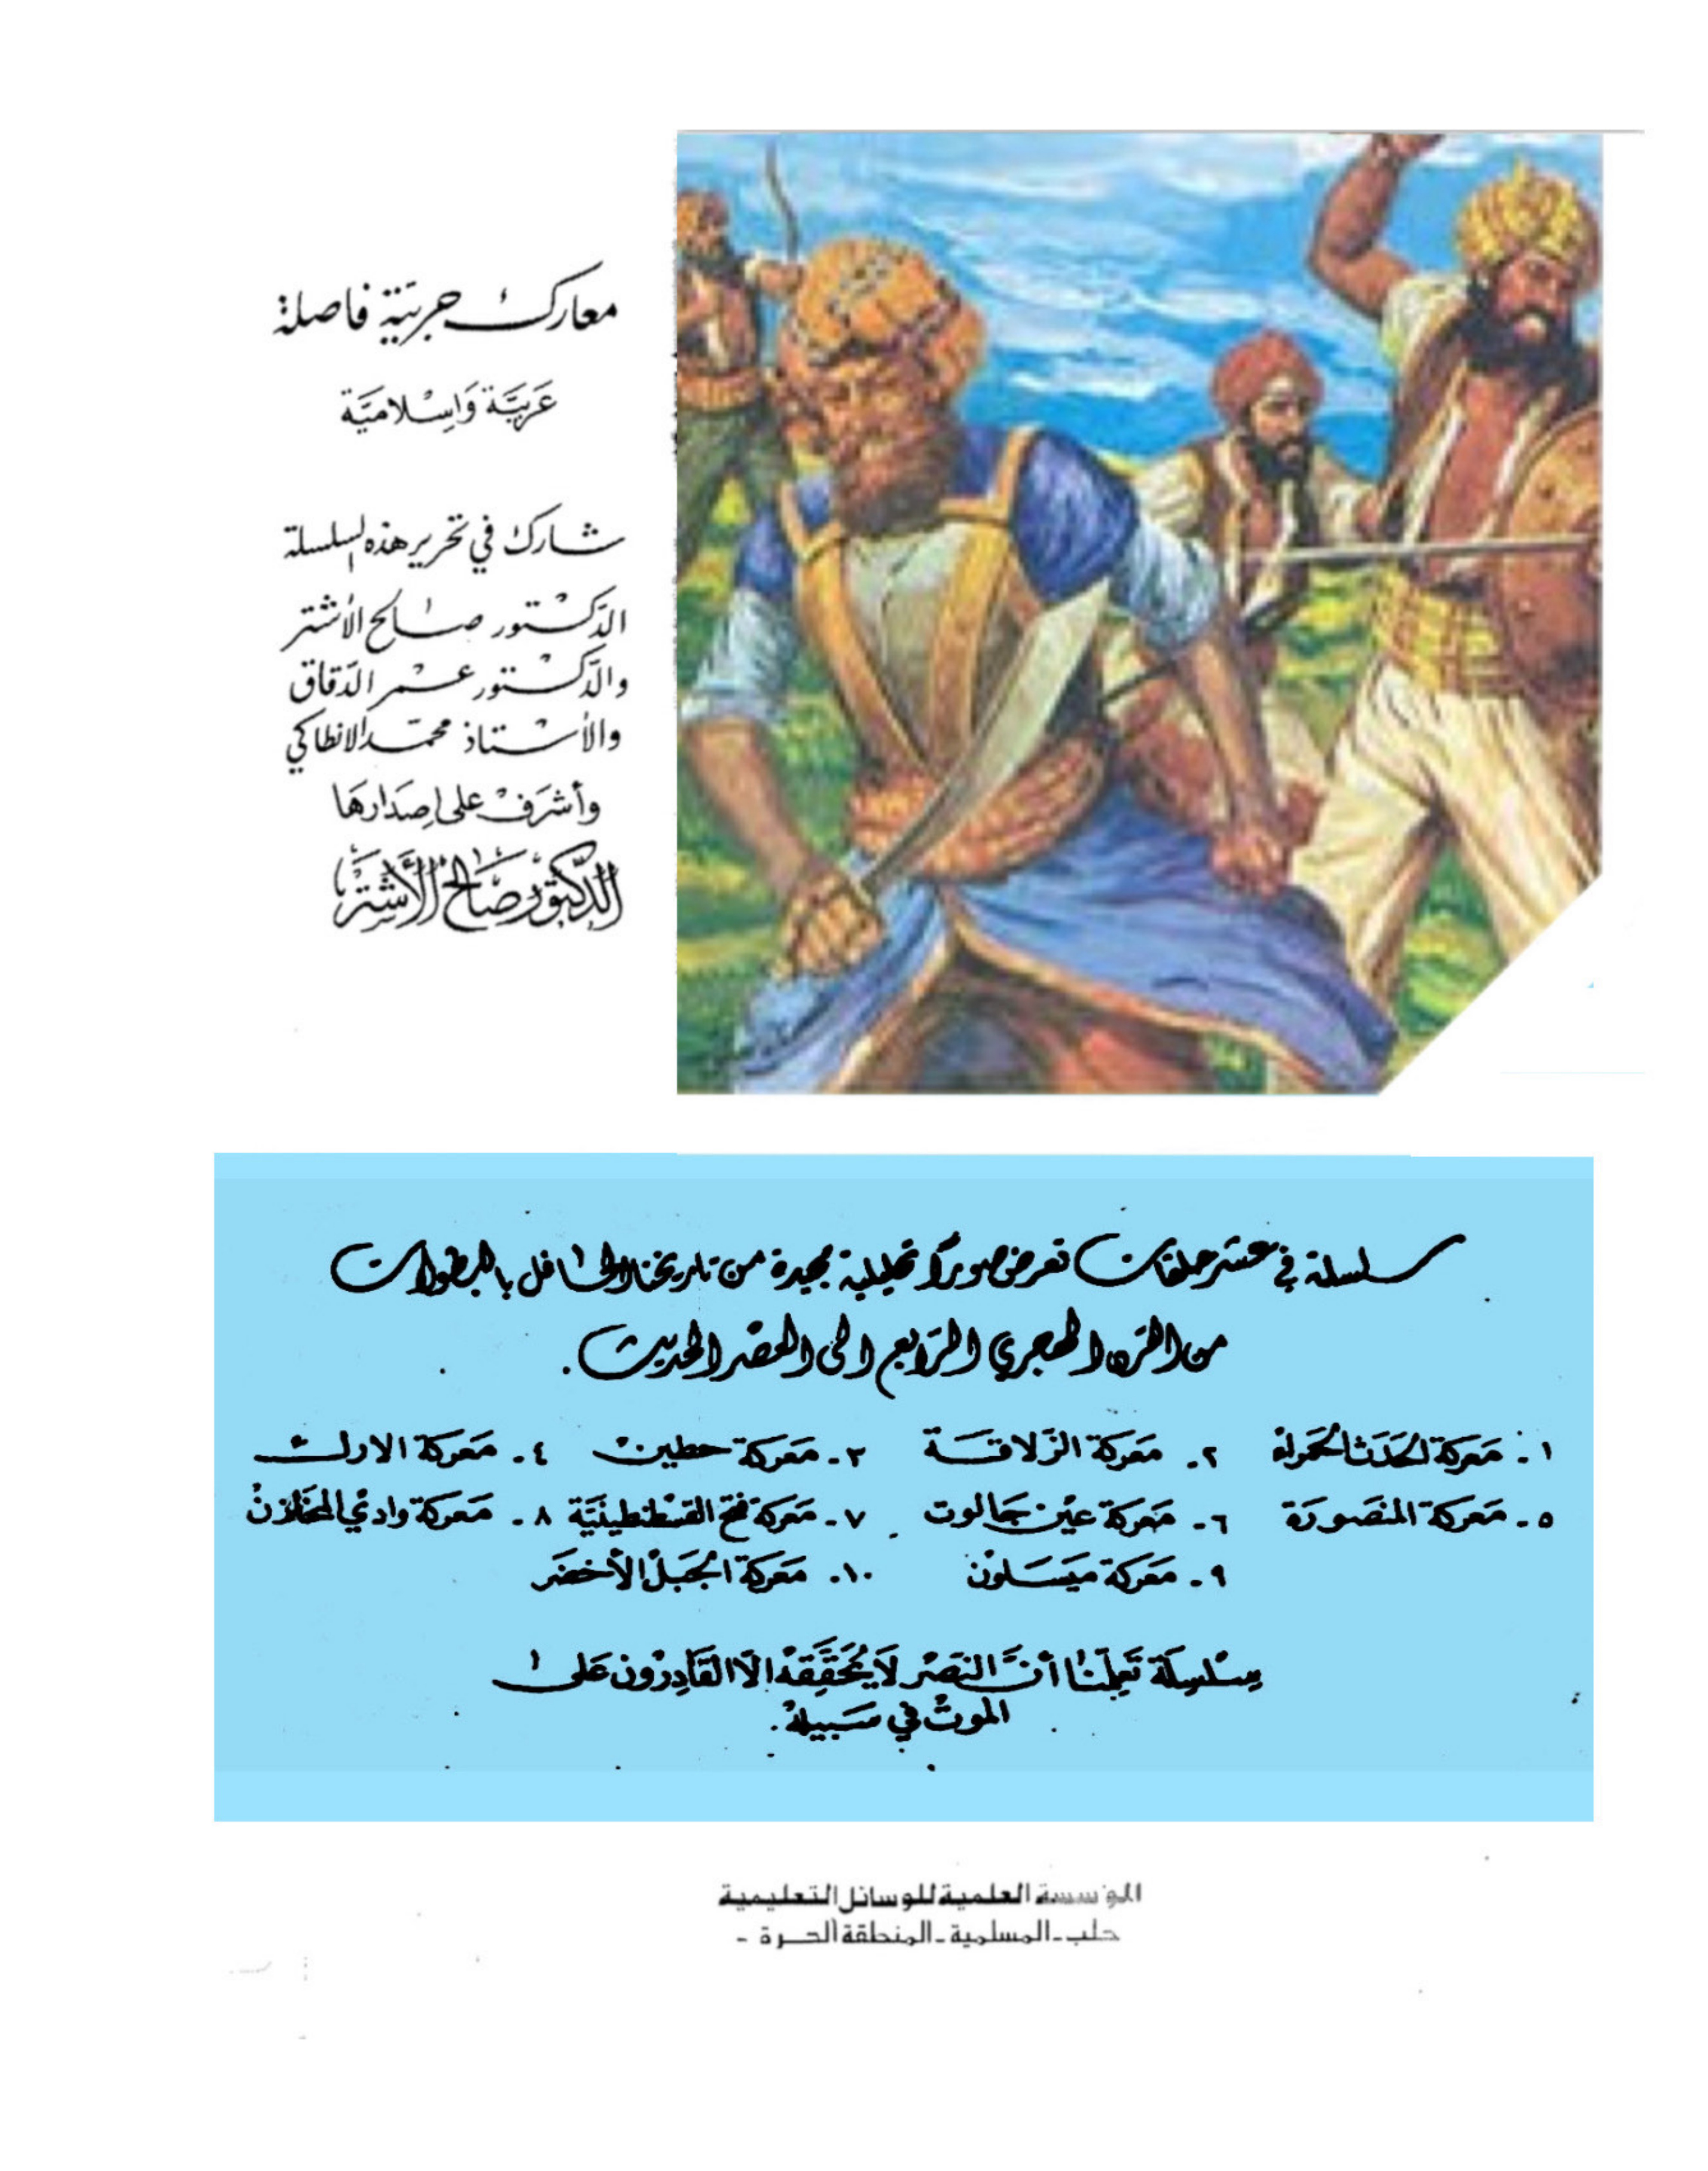 معارك حربيّة فاصلة
عَربيَّة وَإسْلاميَّة
شارك في تحرير هذه السلسلة
الدّكتور صالح الأشتر
والدّكتور عمر الدّقاق
والأستاذ محمّد الانطاكي
وأشرَف على إصدَارهَا
الدّكتور صَالح الأَشتَر
سلسلة في عشر حلقات تعرض صوراً تحليلية مجيدة من تاريخنا الحافل بالبطولات
من القرن الهجري الرّابع الى العصر الحديث.
١. مَعركة الحَدَث الحَمراء ٢. مَعركة الزّلاقَة ٣. مَعركة حطين ٤. مَعركة الارك
٥. مَعركة المنصَورَة ٦. مَعركة عَين جَالوت ٧. مَعركة فتح القسْطنطينيَّة ٨. مَعركة وادي المخَازن
٩. مَعركة مَيسَلوْن ١٠. مَعركة الجَبَل الأخضَر
سِلسِلَة تعَلِّمنا أنَّ النصْر لَا يُحَقِّقَهُ الّا القَادِرُون عَلى
الموتْ في سَبيلهْ.
المؤسسة العلمية للوسائل التعليمية
حلب - المسلمية - المنطقة الحرة -